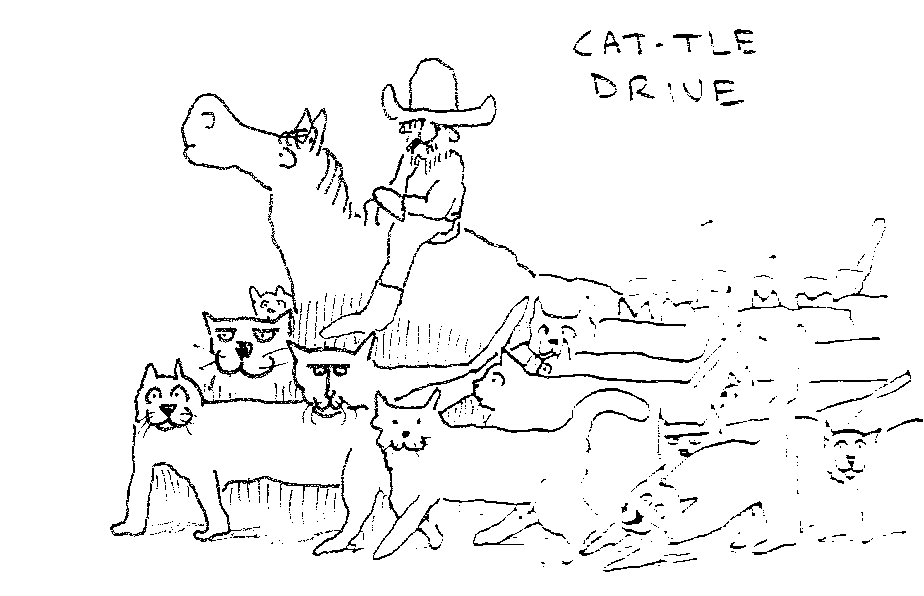 CAT-TLE
DRIVE